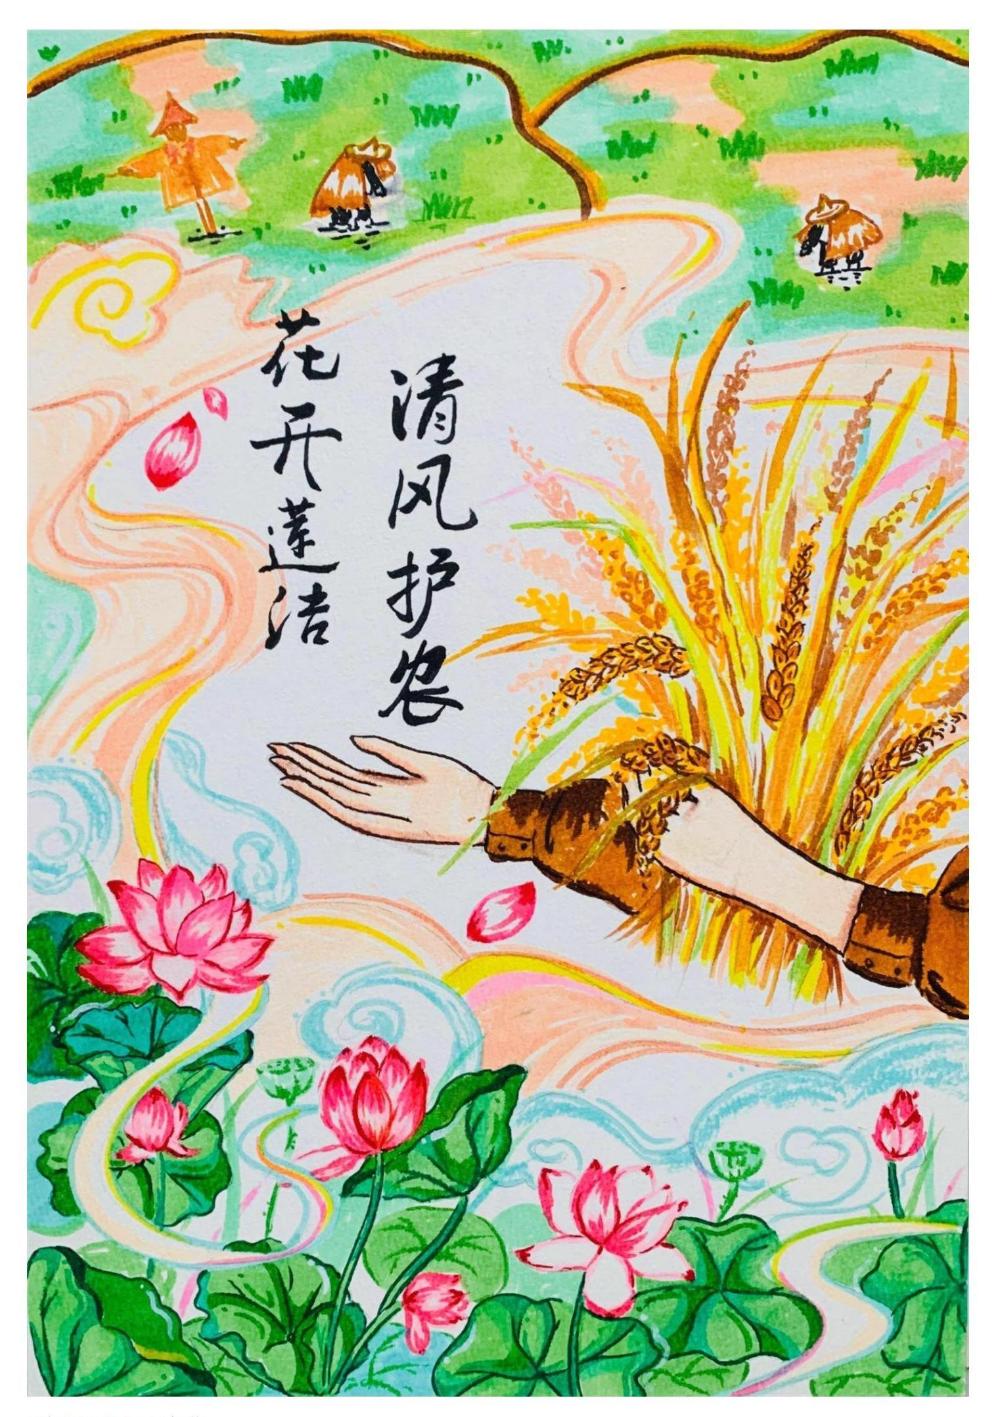 清风护农
花开莲洁